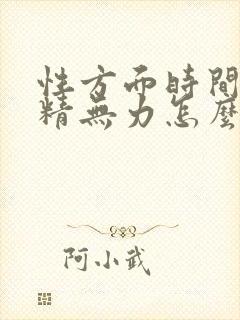 性方面時間
精無力怎麼
阿小武